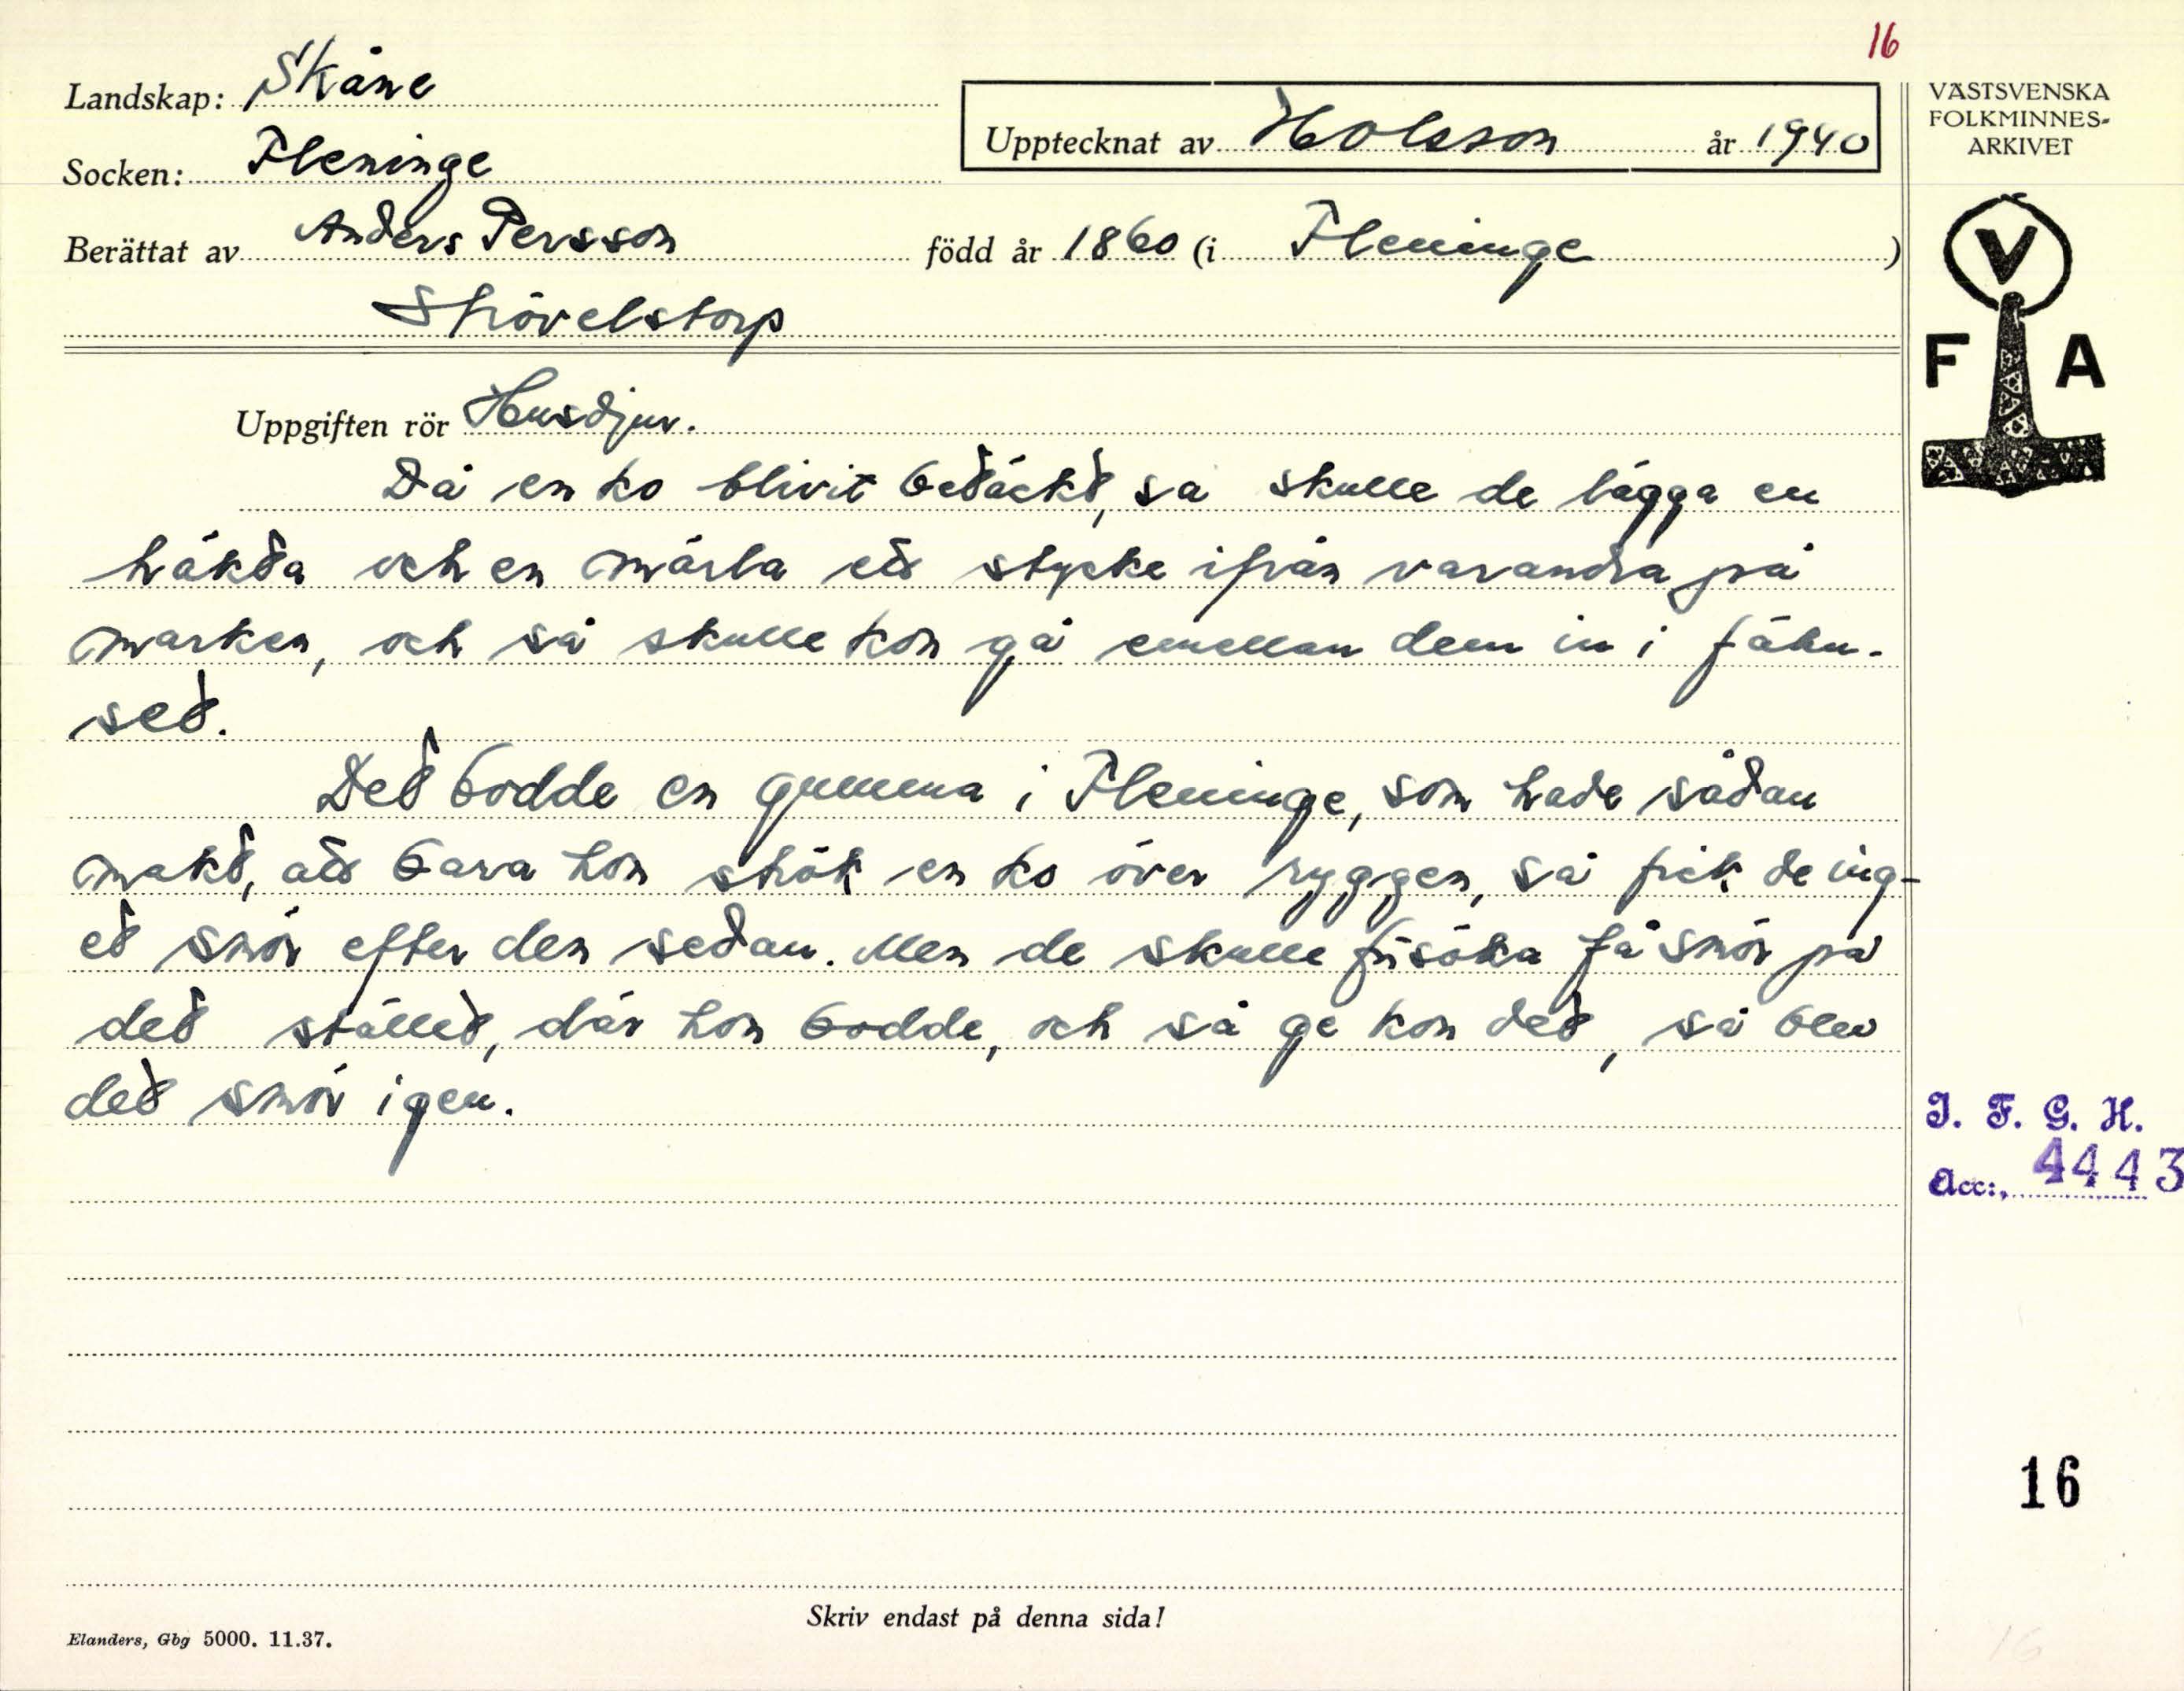 16
Landskap: Skåne
Upptecknat av Holsson år 1940
VÄSTSVENSKA
FOLKMINNES-
ARKIVET
Socken: Fleninge
Berättat av Anders Persson född år 1860 (i Fleninge)
Strövelstorp
V
F A
Uppgiften rör Husdjur.
Då en ko blivit betäckt, så skulle de lägga en
häkta och en märla ett stycke ifrån varandra på
marken, och så skulle kon gå emellan dem in i fähu-
set.
Det bodde en gumma i Fleninge, som hade sådan
makt, att bara hon strök en ko över ryggen, så fick de ing-
et smör efter den sedan. Men de skulle försöka få smör på
det stället, där hon bodde, och så ge kon det, så blev
det smör igen.
I. F. G. H.
Acc:, 4443
16
Skriv endast på denna sida!
Elanders, Gbg 5000. 11.37.
16